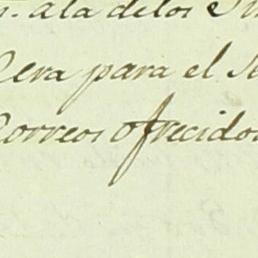 ala de los
Cera para el
Correos ofrecidos